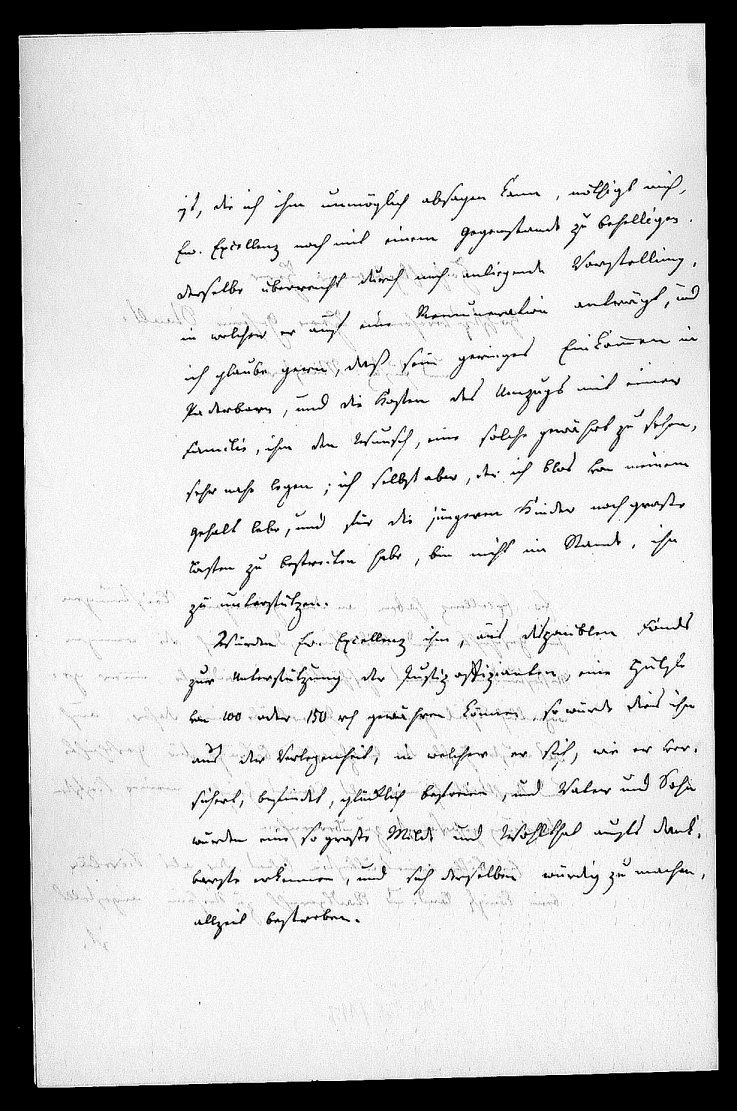 ist, die ich ihm unmöglich absagen kann, nöthigt mich,
Ew. Excellenz noch mit einem Gegenstande zu behelligen.
derselbe überreicht durch mich anliegende Vorstellung,
in welcher er auf eine Remuneration anträgt, und
ich glaube gern, daß sein geringes Einkommen in
Paderborn, und die Kosten des Umzugs mit einer
Familie, ihm den Wunsch, eine solche gewährt zu sehen,
sehr nahe legen; ich selbst aber, der ich blos von meinem
Gehalt lebe, und für die jüngeren Kinder noch große
Lasten zu bestreiten habe, bin nicht im Stande, ihn
zu unterstützen.
Würden Ew. Excellenz ihm, aus disponiblen Fonds
zur Unterstützung der Justizoffizianten, eine Hülfe
von 100 oder 150 rh gewähren können, so würde dies ihn
aus der Verlegenheit, in welcher er sich, wie er ver-
sichert, befindet, glücklich befreien, und Vater und Sohn
würden eine so große Milde und Wohlthat aufs dank-
barste erkennen, und sich derselben würdig zu machen,
allzeit bestreben.